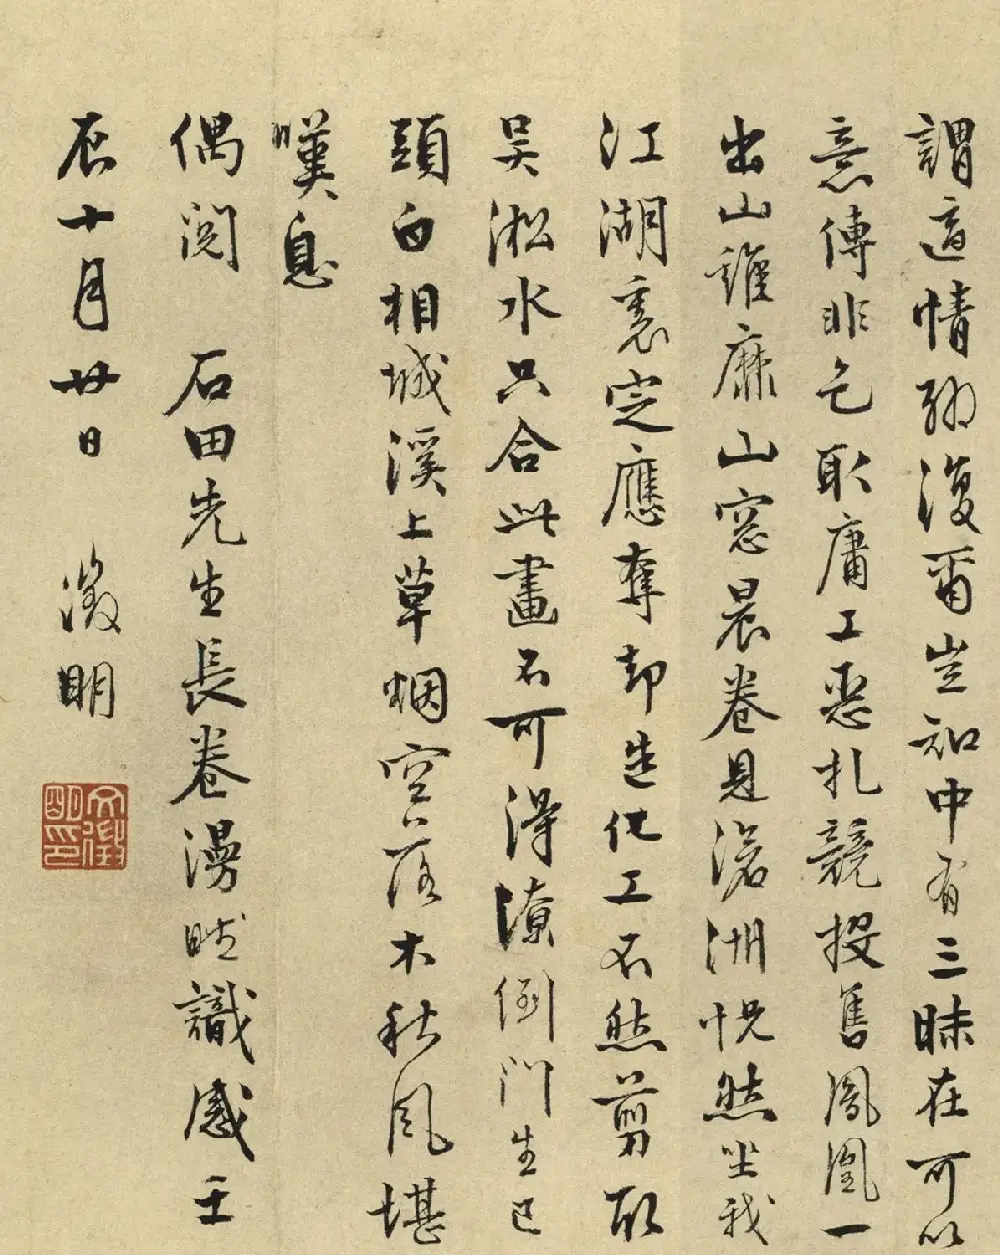 謂適情聊復爾豈知中有三昧在可以
意傳非色取庸工惡札競投售鳳凰一
出山雞靡山窓晨卷見滄洲怳然坐我
江湖裏定應奪却造化工不然剪取
吳淞水只合此畫不可得潦倒門生已
頭白相城溪上草烟空落木秋風堪
嘆息
偶閱 石田先生長卷漫此識感壬
辰十月廿日 徵明